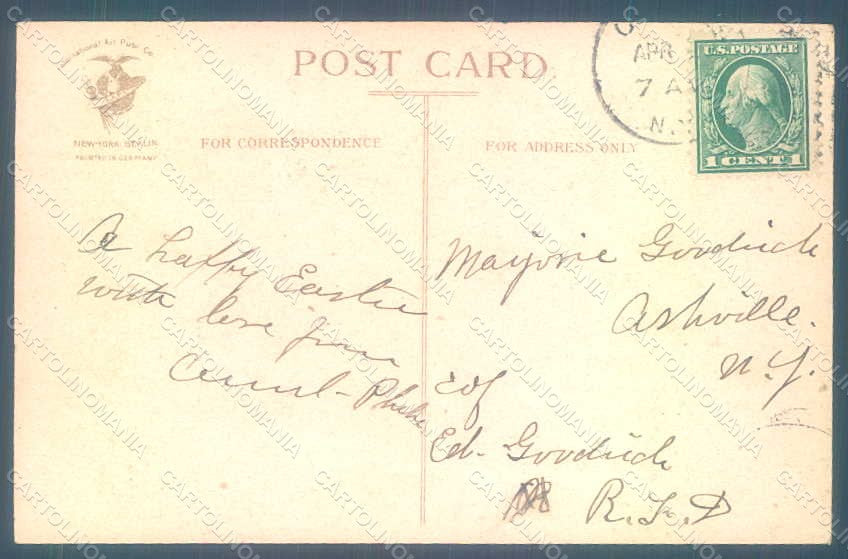 International Art Publ. Co.
NEW-YORK. BERLIN
PRINTED IN GERMANY
POST CARD
APR
7 A
N.Y.
U.S. POSTAGE
1 CENT 1
FOR CORRESPONDENCE
FOR ADDRESS ONLY
A happy Easter
with love from
Aunt Phebe
Marjorie Goodrich
Ashville.
N.Y.
c/o
Ed. Goodrich
R.F.D
CARTOLINOMANIA